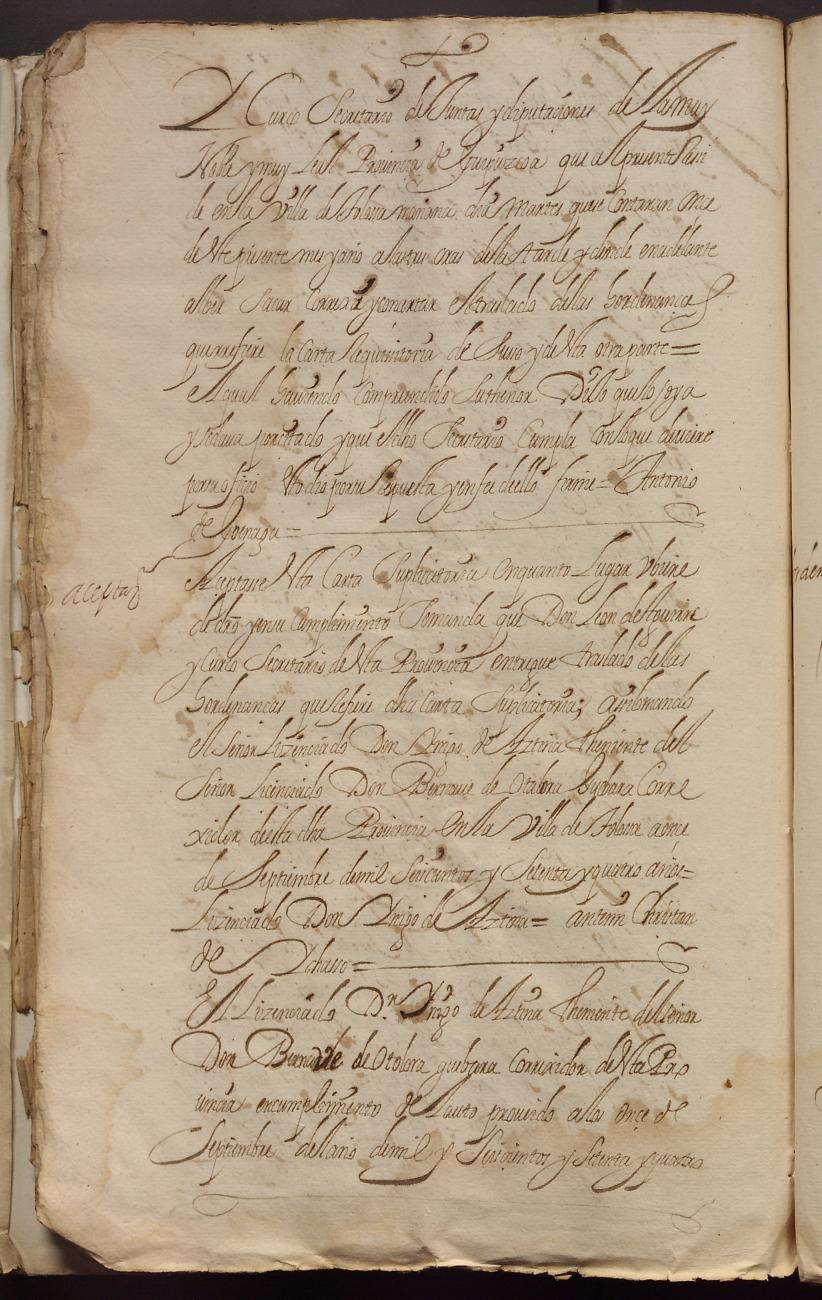 Y Curco Secretario de Juntas y diputaciones de la muy
Noble y muy Leal Provincia de Guipuzcoa que al presente Resi
de en la Villa de Tolosa mañana dia Martes que se contaran once
de este presente mes y año a las tres oras de la tarde y dende en adelante
a lber sacar correxir y concertar el traslado de las hordenanças
que rrefiere la Carta Requisitoria de suso y de esta otra parte =
el qual haviendo comprendido su thenor Dixo que lo oya
y se dava por citado y que el dho Secretario cumpla con lo que deviere
por su oficio esto dio por su Respuesta y en fee de ello firme = Antonio
de Goenaga =
aceptaon
Aceptasse esta Carta Suplicatoria en quanto Lugar Ubiere
de dro y en su cumplimiento Semanda que Don Leon de Aguirre
y Curco Secretario de esta Provincia entregue traslado de las
hordenancas que Refiere dha Carta Suplicatoria; assi lo mando
el Señor Lizenciado Don Yñigo de Aztina Theniente del
Señor Licenciado Don Bernave de Otalora Guebara Corre
xidor de esta dha Provincia en la Villa de Tolosa a once
de Septiembre de mil Seiscientos y Setenta y quatro años =
Lizenciado Don Yñigo de Aztina = antemi Christian
de Ychasso =
El Lizenciado Dn Yñigo de Aztina Theniente del Señor
Don Bernave de Otolora guebara Correxidor de esta Pro
vincia en cumplimiento de el auto proveido a los once de
Septiembre del año de mil y Seiscientos y Setenta y quatro